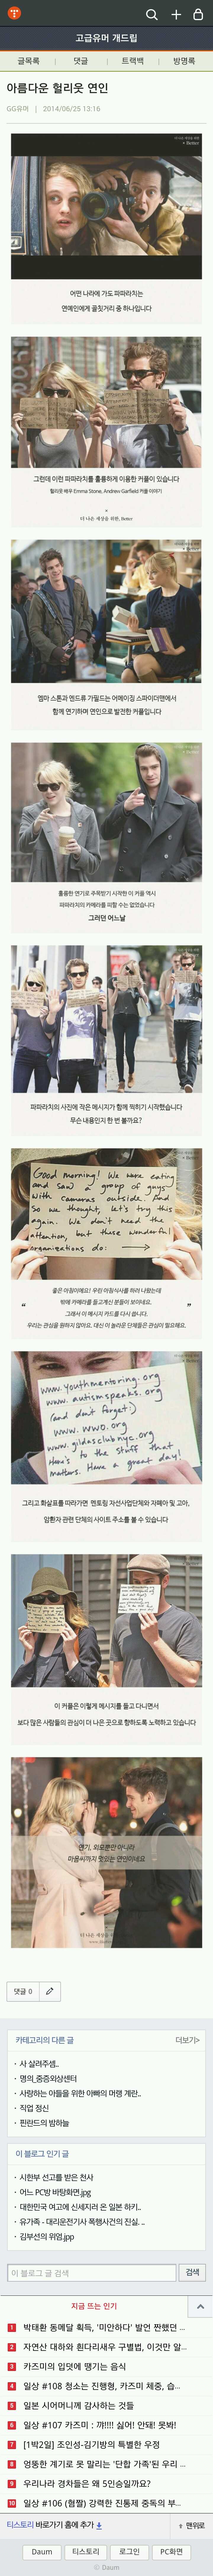 고급유머 개드립
글목록 | 댓글 | 트랙백 | 방명록
아름다운 헐리웃 연인
GG유머 | 2014/06/25 13:16
+ Better
어떤 나라에 가도 파파라치는
연예인에게 골칫거리 중 하나입니다
그런데 이런 파파라치를 훌륭하게 이용한 커플이 있습니다
헐리웃 배우 Emma Stone, Andrew Garfield 커플 이야기
더 나은 세상을 위한, Better
엠마 스톤과 엔드류 가필드는 어메이징 스파이더맨에서
함께 연기하며 연인으로 발전한 커플입니다
훌륭한 연기로 주목받기 시작한 이 커플 역시
파파라치의 카메라를 피할 수는 없었습니다
그러던 어느날
파파라치의 사진에 작은 메시지가 함께 찍히기 시작했습니다
무슨 내용인지 한 번 볼까요?
Good morning! We were eating
and saw a group of guys
with cameras outside. And
so we thought, let's try this
again. We don't need the
attention, but these wonderful
organizations do:
“ 좋은 아침이에요! 우린 아침식사를 하러 나왔는데
밖에 카메라를 들고계신 분들이 보이네요.
그래서 이 메시지 카드를 다시 씁니다.
우리는 관심을 원하지 않아요. 대신 이 놀라운 단체들은 관심이 필요해요. ”
www.youthmentoring.org
www.autismspeaks.org
(and don't forget:)
www.wwo.org
www.gildasclub.org
Here's to the stuff that
matters. Have a great day!
그리고 화살표를 따라가면 멘토링 자선사업단체와 자폐아 및 고아,
암환자 관련 단체의 사이트 주소를 볼 수 있습니다
이 커플은 이렇게 메시지를 들고 다니면서
보다 많은 사람들의 관심이 더 나은 곳으로 향하도록 노력하고 있습니다
연기, 외모뿐만 아니라
마음씨까지 멋있는 연인이네요
댓글 0
카테고리의 다른 글 더보기>
· 사 살려주셈..
· 명의_중증외상센터
· 사랑하는 아들을 위한 아빠의 머랭 계란..
· 직업 정신
· 핀란드의 밤하늘
이 블로그 인기 글
· 시한부 선고를 받은 천사
· 어느 PC방 바탕화면.jpg
· 대한민국 여고에 신세지러 온 일본 하키..
· 유가족 - 대리운전기사 폭행사건의 진실. ..
· 김부선의 위엄.jpg
이 블로그 글 검색 검색
지금 뜨는 인기
1 박태환 동메달 획득, '미안하다' 발언 짠했던 ...
2 자연산 대하와 흰다리새우 구별법, 이것만 알...
3 카즈미의 입덧에 땡기는 음식
4 일상 #108 청소는 진행형, 카즈미 체중, 습...
5 일본 시어머니께 감사하는 것들
6 일상 #107 카즈미 : 꺄!!!! 싫어! 안돼! 못봐!
7 [1박2일] 조인성-김기방의 특별한 우정
8 엉뚱한 계기로 못 말리는 '단합 가족'된 우리 ...
9 우리나라 경차들은 왜 5인승일까요?
10 일상 #106 (혐짤) 강력한 진통제 중독의 부...
티스토리 바로가기 홈에 추가 맨위로
Daum 티스토리 로그인 PC화면
© Daum